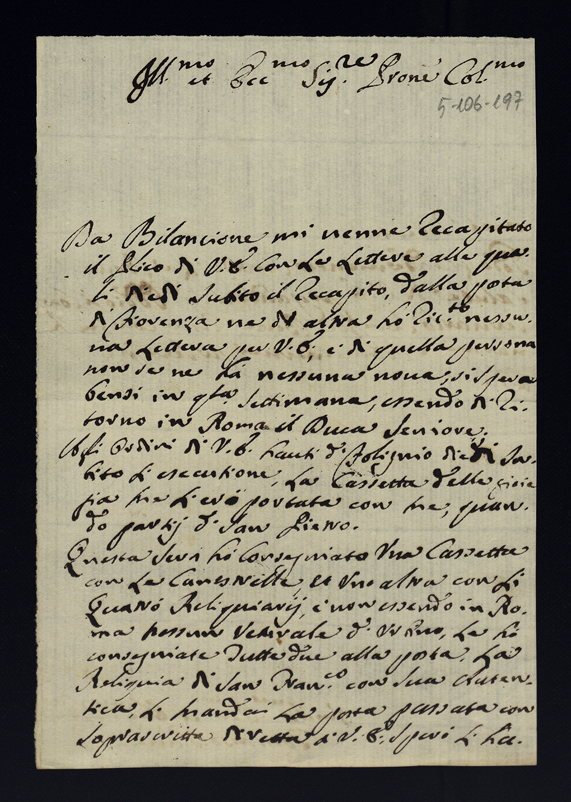 Ill.mo et Ecc.mo Sig.re Prone Col.mo
5-106-197
Da Bilancione mi venne recapitato
il plico di V.E. con le lettere alle qua-
li diedi subito il recapito, dalla posta
di Fiorenza ne di altra hò ric.to nessu-
na lettera per V.E., e di quella persona
non se ne hà nessuna nova, si spera
bensi in q.ta settimana, essendo di ri-
torno in Roma il Duca seniore.
Gli ordini di V.E. hauti da Folignio diedi su-
bito l'esecutione, la Cassetta delle gioie
già me l'ero portata con me, quan-
do partij da San Pietro.
Questa sera hò consegniato una Cassetta
con le Canestrelle et un'altra con li
Quatro Reliquiarij, e non essendo in Ro-
ma nessun Vetturale d'Urbino, le hò
consegniate tutte due alla posta. La
Reliquia di San Fran.co con sua Auten-
tica, li mandai la posta passata con
soprascritta diretta à V.E. sperò l'ha.